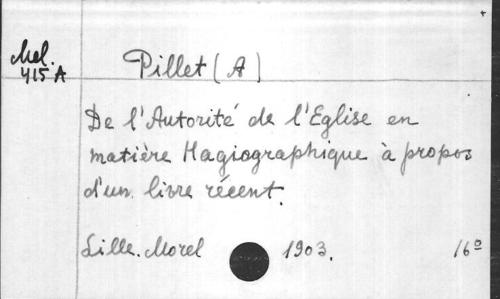 Mel.
415 A
Pillet (A)
De l'Autorité de l'Eglise en
matière Hagiographique à propos
d'un livre récent.
Lille. Morel 1903. 16º